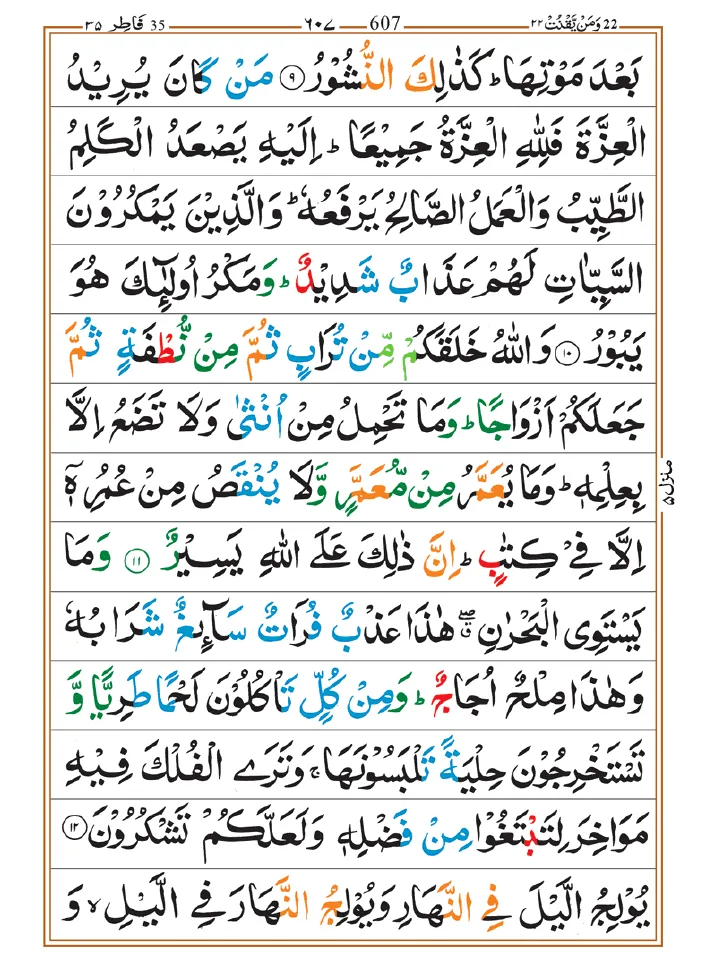 22 وَمَنْ يَّقْنُتْ ٢٢ 607 ٦٠٧ 35 فَاطِر ٣٥
بَعْدَ مَوْتِهَا ؕ كَذٰلِكَ النُّشُوْرُ ۹ مَنْ كَانَ يُرِيْدُ
الْعِزَّةَ فَلِلّٰهِ الْعِزَّةُ جَمِيْعًا ؕ اِلَيْهِ يَصْعَدُ الْكَلِمُ
الطَّيِّبُ وَالْعَمَلُ الصَّالِحُ يَرْفَعُهٗ ؕ وَالَّذِيْنَ يَمْكُرُوْنَ
السَّيِّاٰتِ لَهُمْ عَذَابٌ شَدِيْدٌ ؕ وَمَكْرُ اُولٰٓئِكَ هُوَ
يَبُوْرُ ۱۰ وَاللّٰهُ خَلَقَكُمْ مِّنْ تُرَابٍ ثُمَّ مِنْ نُّطْفَةٍ ثُمَّ
جَعَلَكُمْ اَزْوَاجًا ؕ وَمَا تَحْمِلُ مِنْ اُنْثٰى وَلَا تَضَعُ اِلَّا
بِعِلْمِهٖ ؕ وَمَا يُعَمَّرُ مِنْ مُّعَمَّرٍ وَّلَا يُنْقَصُ مِنْ عُمُرِهٖۤ
اِلَّا فِيْ كِتٰبٍ ؕ اِنَّ ذٰلِكَ عَلَى اللّٰهِ يَسِيْرٌ ۱۱ وَمَا
يَسْتَوِى الْبَحْرٰنِ ۖ هٰذَا عَذْبٌ فُرَاتٌ سَآئِغٌ شَرَابُهٗ
وَهٰذَا مِلْحٌ اُجَاجٌ ؕ وَمِنْ كُلٍّ تَاْكُلُوْنَ لَحْمًا طَرِيًّا وَّ
تَسْتَخْرِجُوْنَ حِلْيَةً تَلْبَسُوْنَهَا ۚ وَتَرَى الْفُلْكَ فِيْهِ
مَوَاخِرَ لِتَبْتَغُوْا مِنْ فَضْلِهٖ وَلَعَلَّكُمْ تَشْكُرُوْنَ ۱۲
يُوْلِجُ الَّيْلَ فِي النَّهَارِ وَيُوْلِجُ النَّهَارَ فِي الَّيْلِ ۙ وَ
منزل ۵